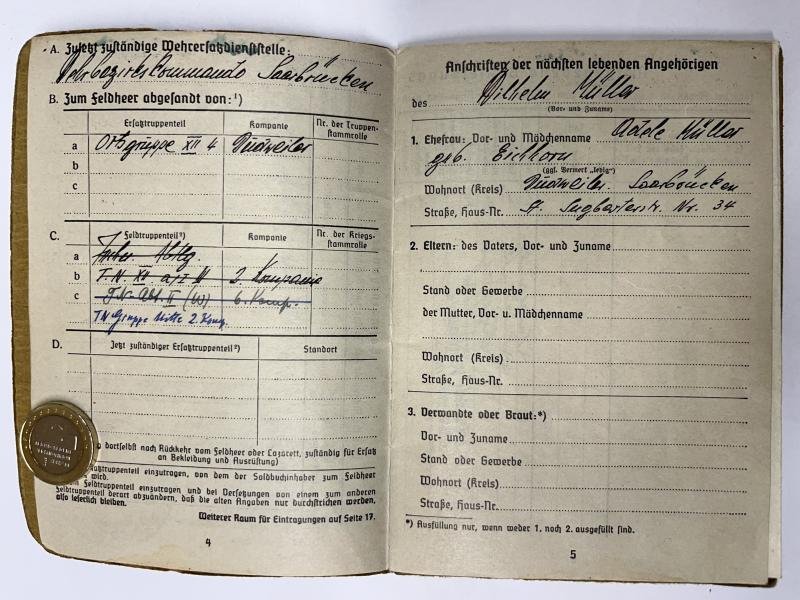 A. Zuletzt zuständige Wehrersatzdienststelle:
Wehrbezirkskommando Saarbrücken
B. Zum Feldheer abgesandt von:¹)
Ersatztruppenteil Kompanie Nr. der Truppen-
stammrolle
a Ortsgruppe XII 4 Dudweiler
b
c
C. Feldtruppenteil²) Kompanie Nr. der Kriegs-
stammrolle
a
b T.N. XII a/I III 2. Kompanie
c T.N. Abt. II (W) 6. Komp.
TN Gruppe Mitte 2 Komp.
D. Jetzt zuständiger Ersatztruppenteil³) Standort
dortselbst nach Rückkehr vom Feldheer oder Lazarett, zuständig für Ersatz
an Bekleidung und Ausrüstung)
einzutragen, von dem der Soldbuchinhaber zum Feldheer
wird.
Feldtruppenteil einzutragen und bei Versetzungen von einem zum anderen
Feldtruppenteil derart abzuändern, daß die alten Angaben nur durchstrichen werden,
also leserlich bleiben.
Weiterer Raum für Eintragungen auf Seite 17.
4
Anschriften der nächsten lebenden Angehörigen
des Wilhelm Müller
(Vor- und Zuname)
1. Ehefrau: Vor- und Mädchenname Adele Müller
geb. Eichhorn
(ggf. Vermerk „ledig")
Wohnort (Kreis) Dudweiler Saarbrücken
Straße, Haus-Nr. St. Ingberterstr. Nr. 34
2. Eltern: des Vaters, Vor- und Zuname
Stand oder Gewerbe
der Mutter, Vor- u. Mädchenname
Wohnort (Kreis)
Straße, Haus-Nr.
3. Verwandte oder Braut:*)
Vor- und Zuname
Stand oder Gewerbe
Wohnort (Kreis)
Straße, Haus-Nr.
*) Ausfüllung nur, wenn weder 1. noch 2. ausgefüllt sind.
5